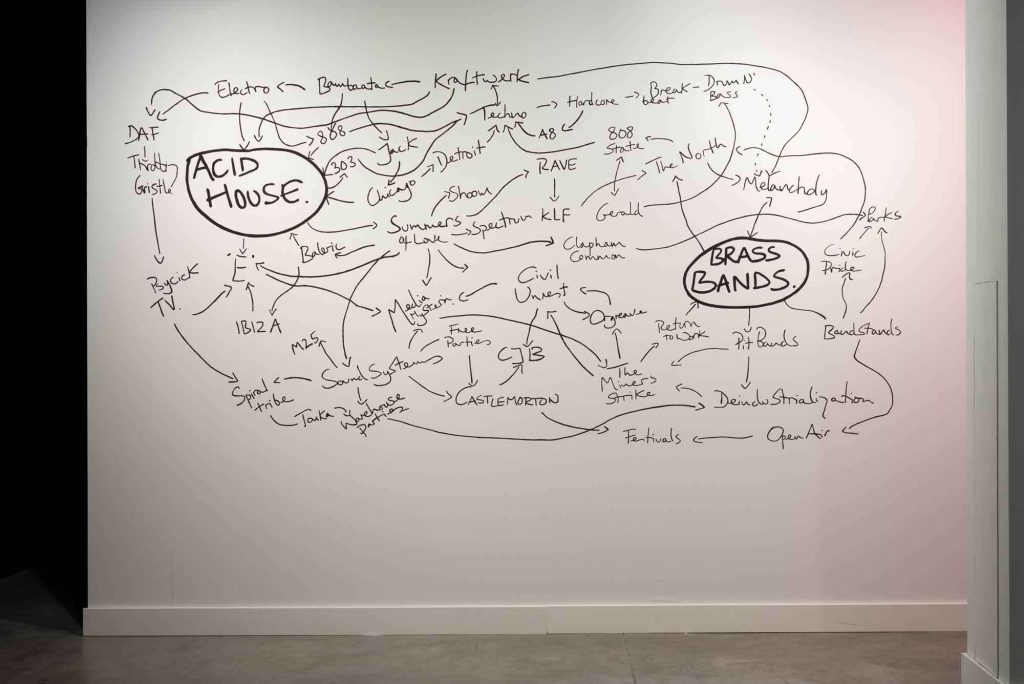 Electro
Bambaata
Kraftwerk
DAF
Throbbing
Gristle
808
303
Jack
Chicago
Detroit
Techno
Hardcore
Break-
beat
Drum N'
Bass
A8
RAVE
808
State
The North
Melancholy
ACID
HOUSE.
Shoom
Summers
of Love
Spectrum
KLF
Gerald
Baleric
Clapham
Common
Parks
BRASS
BANDS.
Civic
Pride
'E'.
Psycick
TV.
IBIZA
Media
Hysteria.
Civil
Unrest
Orgreave
Return
to Work
Pit Bands
Bandstands
M25
Free
Parties
CJB
Sound Systems
The
Miners
Strike
Spiral
tribe
Tonka
Warehouse
Parties
CASTLEMORTON
Deindustrialization
Festivals
Open Air